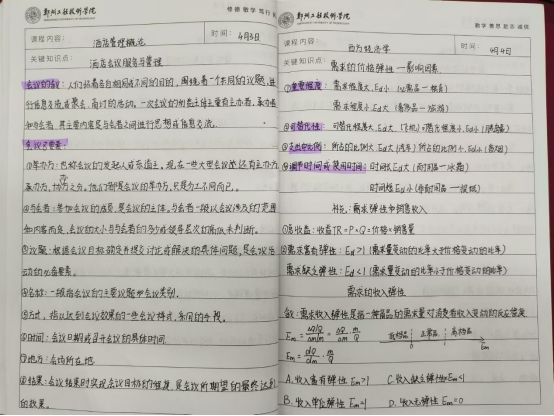 郑州工程技术学院
修德 敏学 笃行
课程内容: 酒店管理概论 时间: 4月3日
关键知识点: 酒店会议服务与管理
会议的含义: 人们怀着各自相同或不同的目的, 围绕着一个共同的议题, 进
行信息交流或聚会、商讨的活动。一次会议的利益主体主要有主办者、承办者
和与会者, 其主要内容是与会者之间进行思想或信息交流。
会议之要素:
①举办方: 也称会议的发起人或东道主。现在一些大型会议
承办方、协办方之分, 他们都是会议的举办方, 只是分工不同而已。
②与会者: 参加会议的成员, 是会议的主体。与会者一般以会议涉及的范围
和内容而定, 会议的大小与与会者的多少或级别层次的高低来判断。
③议题: 根据会议目标确定并提交讨论或解决的具体问题, 是会议活
动的必备要素。
④名称: 一般指会议的主要议题和会议类别。
⑤方式: 指以达到会议效果的一些会议样式、采用的手段。
⑥时间: 会议日期或召开会议的具体时间。
⑦地方: 会场所在地
⑧结果: 会议结束时实现会议目标的程度, 是会议所期望的最终达到
的效果。
郑州工程技术学院
课程内容: 西方经济学 时间: 4月4日
关键知识点: 需求的价格弹性——影响因素
①重要程度: 需求程度大, Ed小 (必需品—粮食)
需求程度小, Ed大 (奢侈品—旅游)
②可替代性: 可替代程度大, Ed大 (飞机) 可替代程度小, Ed小 (胰岛素)
③支出中比例: 所占的比例大, Ed大 (汽车) 所占比例小, Ed小 (香烟)
④调节时间或使用时间: 时间长 Ed大 (耐用品—冰箱)
时间短 Ed小 (非耐用品—报纸)
补充: 需求弹性和销售收入
①总收益: 收益TR=P×Q=价格×销售量
②需求富有弹性: Ed>1 (需求量变动的比率大于价格变动的比率)
需求缺乏弹性: Ed<1 (需求量变动的比率小于价格变动的比率)
需求的收入弹性
含义: 需求收入弹性是指一种商品的需求量对消费者收入变动的反应程度
Em = (ΔQ/Q)/(Δm/m) = ΔQ/Δm · m/Q 低档品 正常品 高档品
0 1 Em
Em = dQ/dm · m/Q
A. 收入富有弹性 Em>1 C. 收入缺乏弹性 Em<1
B. 收入单位弹性 Em=1 D. 收入无弹性 Em=0